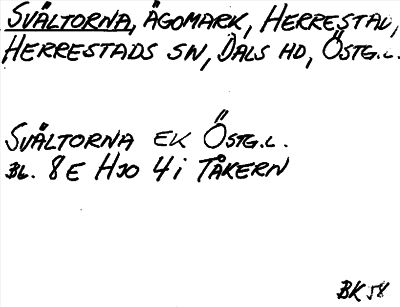 SVÄLTORNA, ÄGOMARK, HERRESTAD,
HERRESTADS SN, DALS HD, ÖSTG.L.
SVÄLTORNA EK ÖSTG.L.
BL. 8E HJO 4i TÅKERN
BK 58